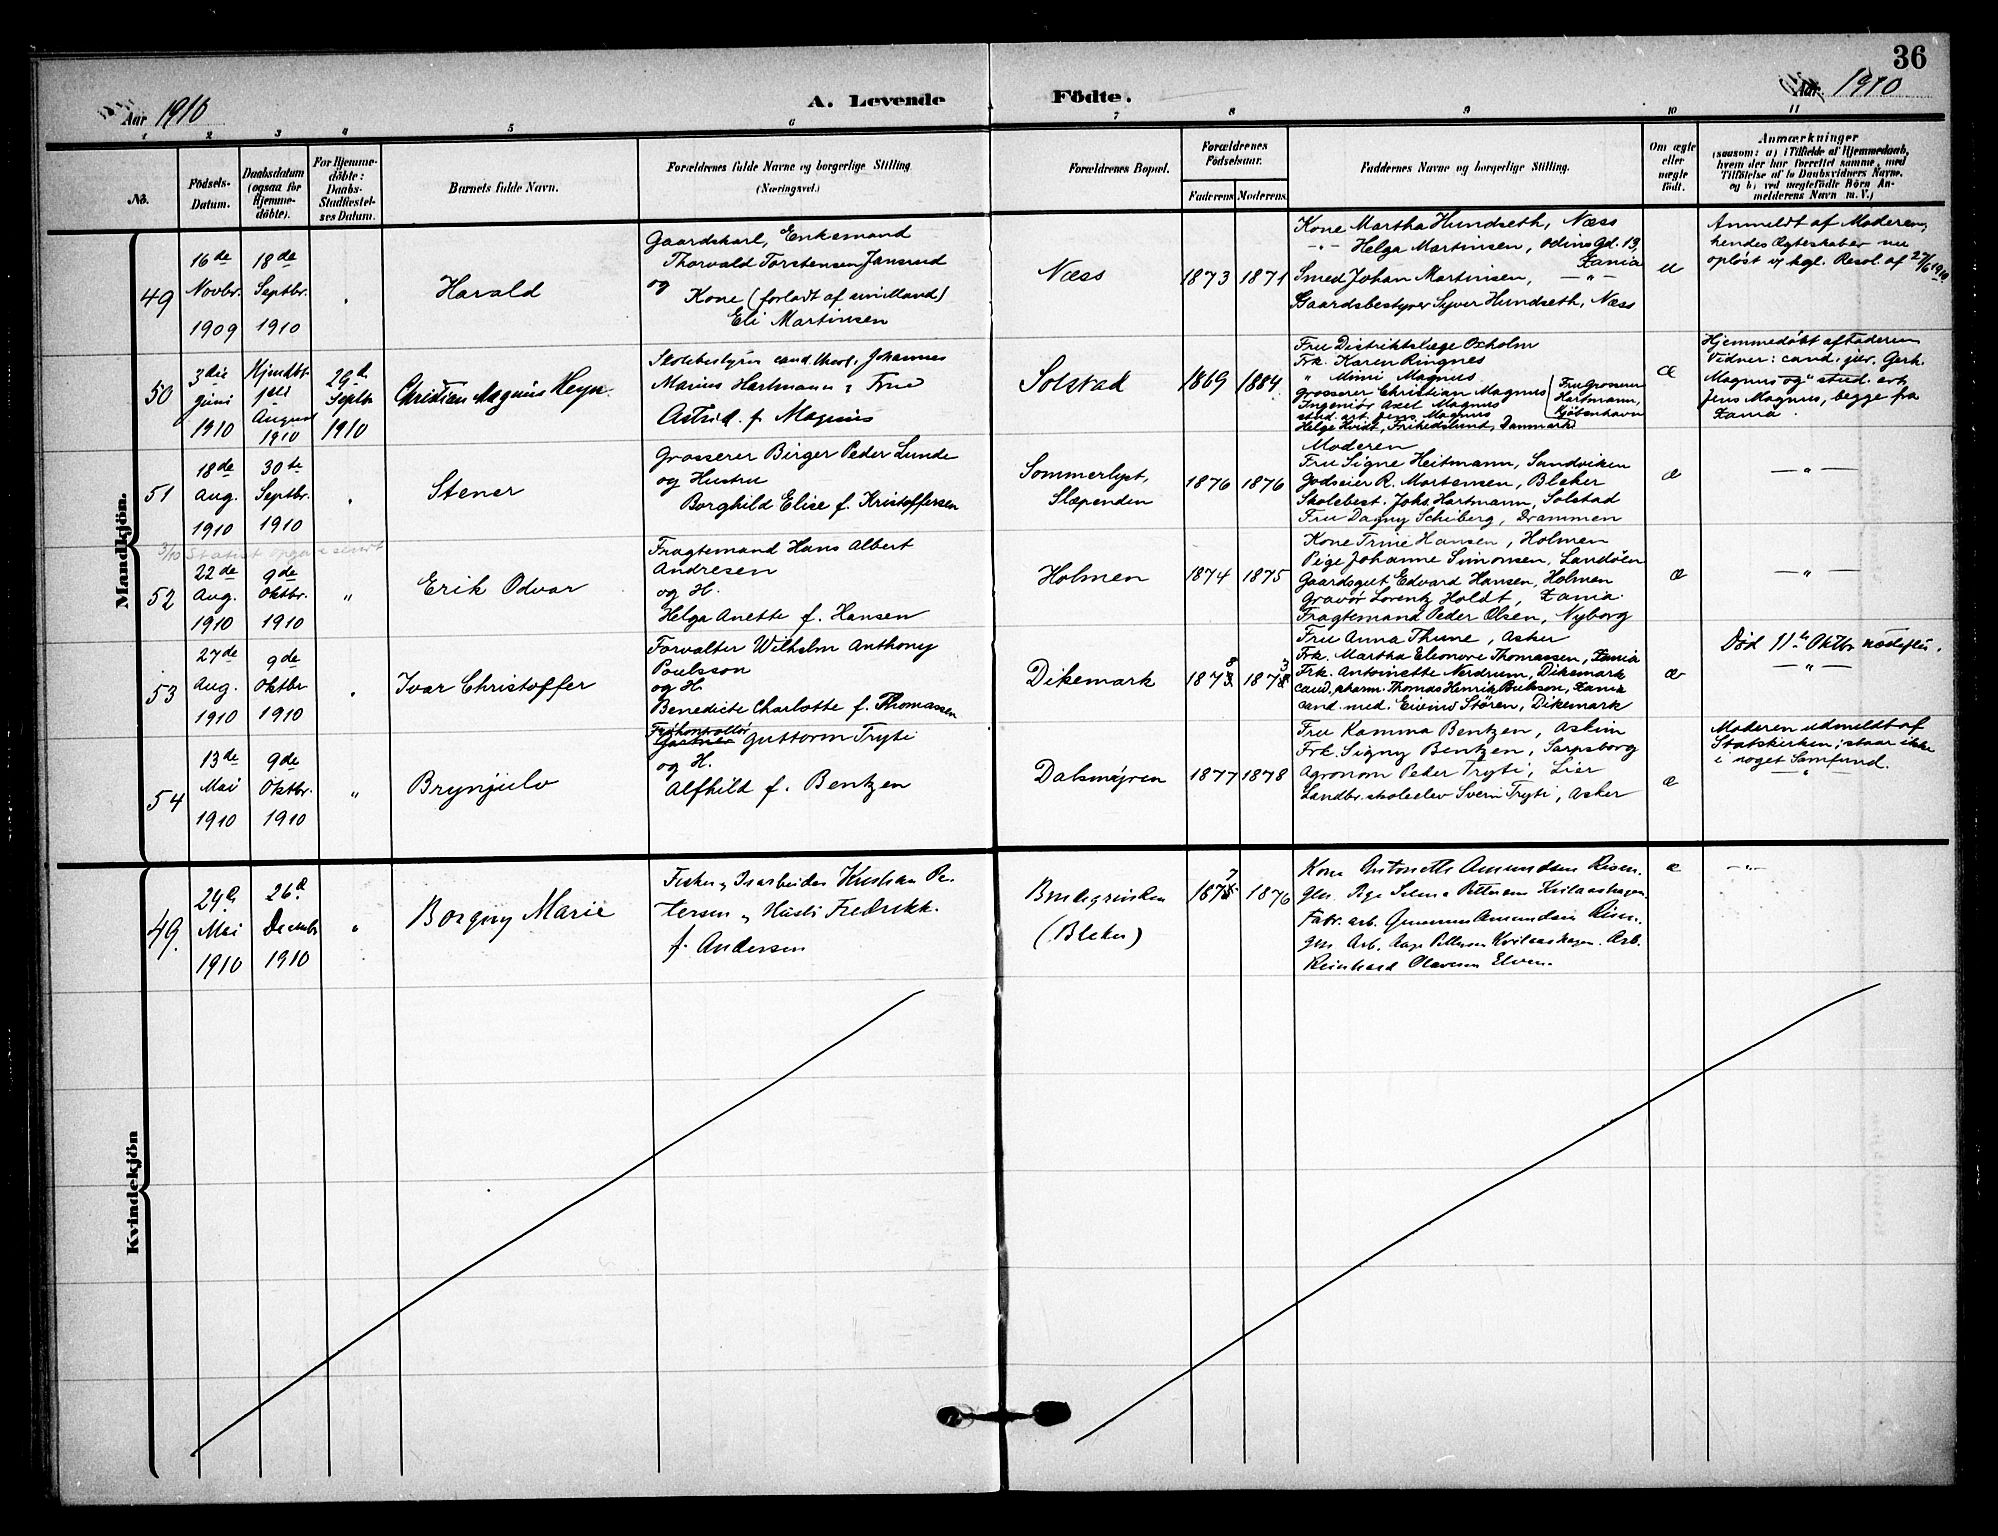 36
Aar 1910
A. Levende Födte.
Aar 1910
1 2 3 4 5 6 7 8 9 10 11
No.
Födsels-Datum.
Daabsdatum (ogsaa for Hjemmedöbte).
For Hjemmedöbte: Daabs-Stadfæstelses Datum.
Barnets fulde Navn.
Forældrenes fulde Navne og borgerlige Stilling.
(Næringsvei.)
Forældrenes Bopæl.
Forældrenes Födselsaar.
Faderens Moderens
Faddernes Navne og borgerlige Stilling.
Om ægte eller uægte födt.
Anmærkninger
(saasom: a) i Tilfælde af Hjemmedaab,
hvem der har forrettet samme, med
Tilföielse af to Daabsvidners Navne,
og b) ved uægtefödte Börn An-
melderens Navn m. V.)
Mandkjön.
49
16de Novbr. 1909
18de Septbr. 1910
"
Harald
Gaardskarl, Enkemand
Thorvald Torstensen Jansrud
og
Kone (forladt af sin Mand)
Eli Martinsen
Næss
1873 1871
Kone Martha Hundseth, Næss
-"- Helga Martinsen, Odins Gd. 13,
Xania
Smed Johan Martinsen, -"-
Gaardsbestyrer Syver Hundseth, Næss
u
Anmeldt af Moderen,
hendes Ægteskab er nu
opløst v/ kgl. Resol. af 27/6 1910
50
3die Juni 1910
August 1910
29de Septbr 1910
Christian Magnus Heyn
Skolebestyrer cand. theol. Johannes
Marius Hartmann & Frue
Astrid f. Magnus
Solstad
1869 1884
Fru Distriktslæge Oxholm
Frk. Karen Ringnes
" Mimi Magnus
Grosserer Christian Magnus
Ingeniør Axel Magnus
stud. art. Jens Magnus
Helge Hvidt, Frihedslund, Danmark
(Fru Grosserer
Hartmann,
Kjöbenhavn
æ
Hjemmedøbt af Faderen
Vidner: cand. jur. Gerh.
Magnus og stud. art.
Jens Magnus, begge fra
Xania.
51
18de Aug. 1910
30te Septbr. 1910
"
Stener
Grosserer Birger Peder Lunde
og Hustru
Borghild Elise f. Kristoffersen
Sommerlyst,
Slæpenden
1876 1876
Moderen
Fru Signe Heitmann, Sandviken
Godseier R. Mortensen, Bleker
Skolebest. Johs Hartmann, Solstad
Fru Dagny Schiberg, Drammen
æ
-"-
3/10 Statist. opgave sendt
52
22de Aug. 1910
9de Oktbr. 1910
"
Erik Odvar
Fragtemand Hans Albert
Andresen
og H.
Helga Anette f. Hansen
Holmen
1874 1875
Kone Trine Hansen, Holmen
Pige Johanne Simonsen, Landöen
Gaardsgut Edvard Hansen, Holmen
Gravør Lorentz Holdt, Xania
Fragtemand Peder Olsen, Nyborg
æ
-"-
53
27de Aug. 1910
9de Oktbr 1910
"
Ivar Christoffer
Forvalter Wilhelm Anthony
Poulsson
og H.
Benedicte Charlotte f. Thomassen
Dikemark
1878 1873
Fru Anna Thune, Asker
Frk. Martha Eleonore Thomassen, Xania
Frk. Antoinette Nerdrum, Dikemark
cand. pharm. Thomas Henrik Poulsson, Xania
cand. med. Eivind Stören, Dikemark
æ
Död 11te Oktbr næstefter.
-"-
54
13de Mai 1910
9de Oktbr. 1910
"
Brynjulv
Frøkontrollör
Gartner Guttorm Tryti
og H.
Alfhild f. Bentzen
Dalsmyren
1877 1878
Fru Kamma Bentzen, Askim
Frk. Signy Bentzen, Sarpsborg
Agronom Peder Tryti, Lier
Landbr.skoleelev Svein Tryti, Asker
æ
Moderen udmeldt af
Statskirken; staar ikke
i noget Samfund.
-"-
Kvindekjön
49.
29de Mai 1910
26de Decembr 1910
"
Borgny Marie
Fisker & Isarbeider Kristian Pe-
tersen & Hustr Fredrikk.
f. Andersen
(Bleker)
1877 1876
Kone Antonette Amundsen Risen.
Gm. Pige Selma Pettersen Kvilaashagen
Fabr. arb. Gunerius Amundsen Risen.
gm. Arb. Aage Pettersen Kvilaashagen. Arb.
Reinhard Olavesen Elven.
æ
-"-